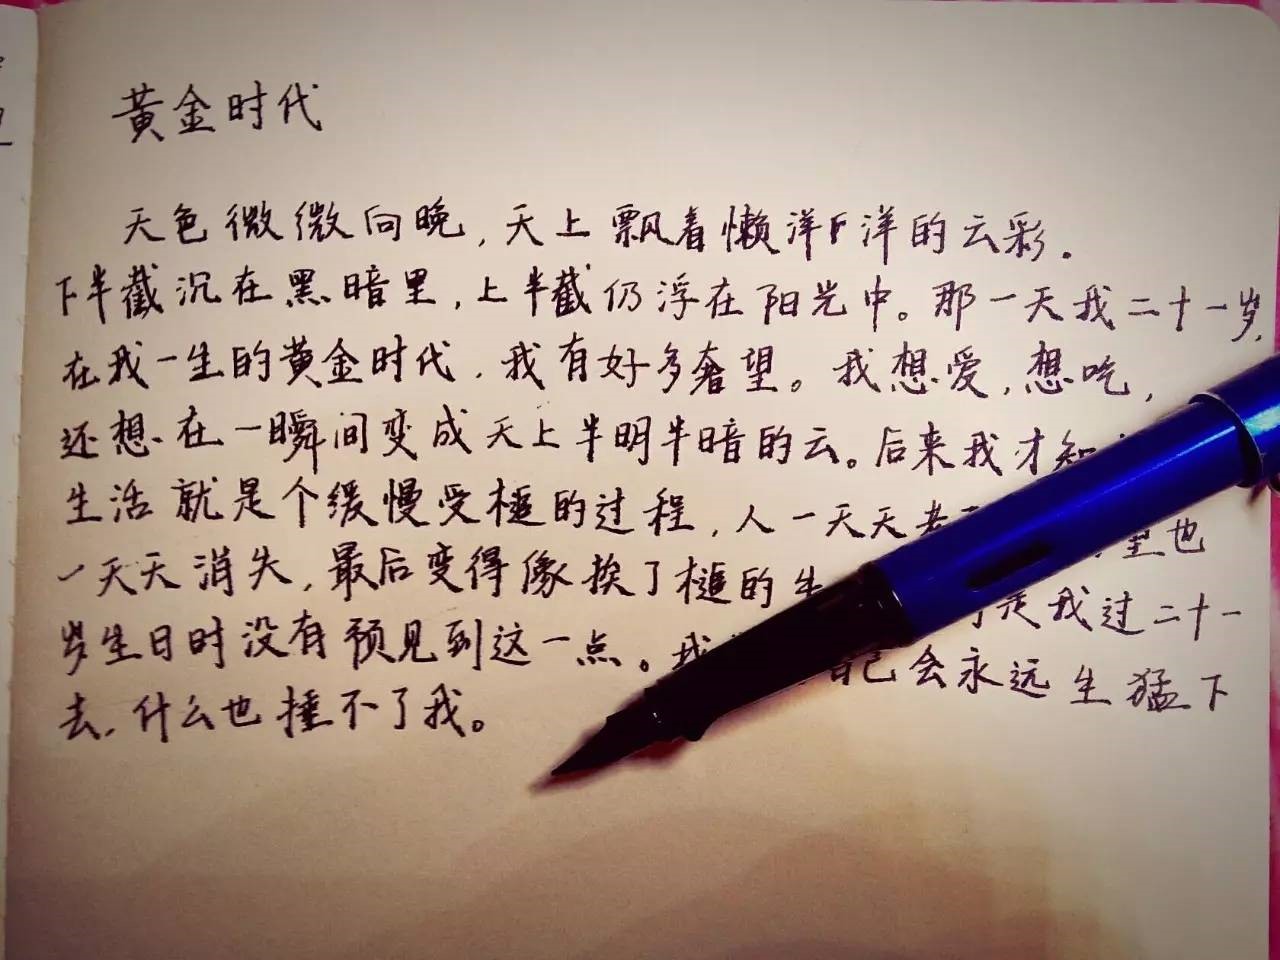 黄金时代
天色微微向晚,天上飘着懒洋洋的云彩.
下半截沉在黑暗里,上半截仍浮在阳光中。那一天我二十一岁,
在我一生的黄金时代,我有好多奢望。我想爱,想吃,
还想在一瞬间变成天上半明半暗的云。后来我才知
生活就是个缓慢受槌的过程,人一天天老 望也
一天天消失,最后变得像挨了槌的牛 是我过二十一
岁生日时没有预见到这一点。我 自己会永远生猛下
去,什么也捶不了我。